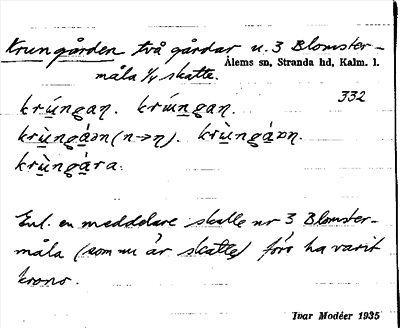 Krungården två gårdar n. 3 Blomster-
Ålems sn, Stranda hd, Kalm. l.
måla 1/4 skatte.
332
krúngaṇ. krúngaṇ.
krùngán (n->ṇ). krùngáṇ.
krùngára.
Enl. en meddelare skulle nr 3 Blomster-
måla (som nu är skatte) förr ha varit
krono.
Ivar Modéer 1935